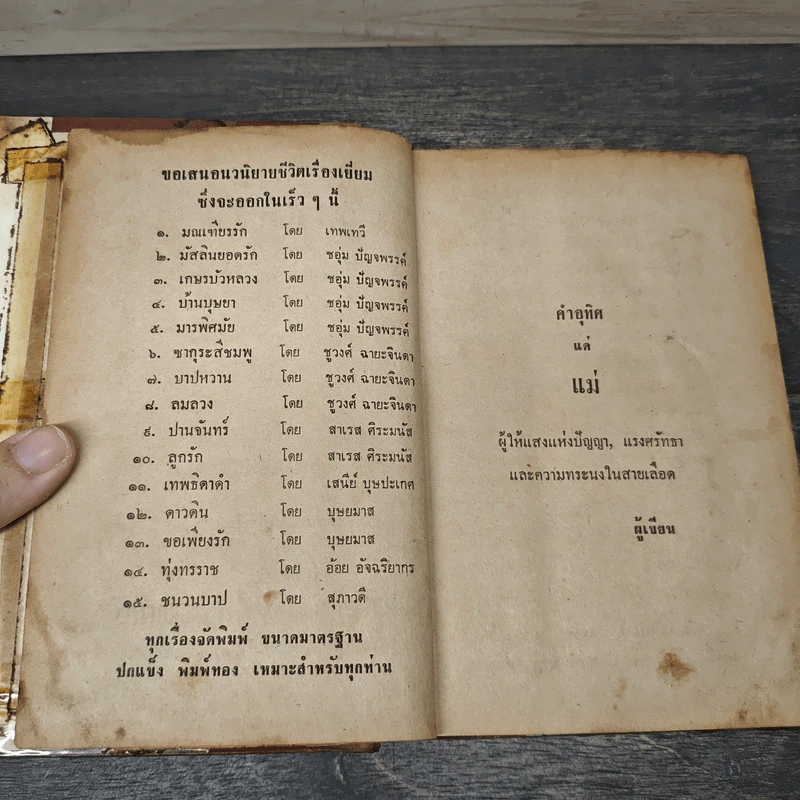 ขอเสนอนวนิยายชีวิตเรื่องเยี่ยม
ซึ่งจะออกในเร็ว ๆ นี้
๑. มณเฑียรรัก โดย เทพเทวี
๒. มัสลินยอดรัก โดย ชอุ่ม ปัญจพรรค์
๓. เกษรบัวหลวง โดย ชอุ่ม ปัญจพรรค์
๔. บ้านบุษยา โดย ชอุ่ม ปัญจพรรค์
๕. มารพิศมัย โดย ชอุ่ม ปัญจพรรค์
๖. ซากุระสีชมพู โดย ชูวงศ์ ฉายะจินดา
๗. บาปหวาน โดย ชูวงศ์ ฉายะจินดา
๘. ลมลวง โดย ชูวงศ์ ฉายะจินดา
๙. ปานจันทร์ โดย สาเรส ศิระมนัส
๑๐. ลูกรัก โดย สาเรส ศิระมนัส
๑๑. เทพธิดาดำ โดย เสนีย์ บุษปะเกศ
๑๒. ดาวดิน โดย บุษยมาส
๑๓. ขอเพียงรัก โดย บุษยมาส
๑๔. ทุ่งทรราช โดย อ้อย อัจฉริยากร
๑๕. ชนวนบาป โดย สุภาวดี
ทุกเรื่องจัดพิมพ์ ขนาดมาตรฐาน
ปกแข็ง พิมพ์ทอง เหมาะสำหรับทุกท่าน
คำอุทิศ
แด่
แม่
ผู้ให้แสงแห่งปัญญา, แรงศรัทธา
และความทระนงในสายเลือด
ผู้เขียน